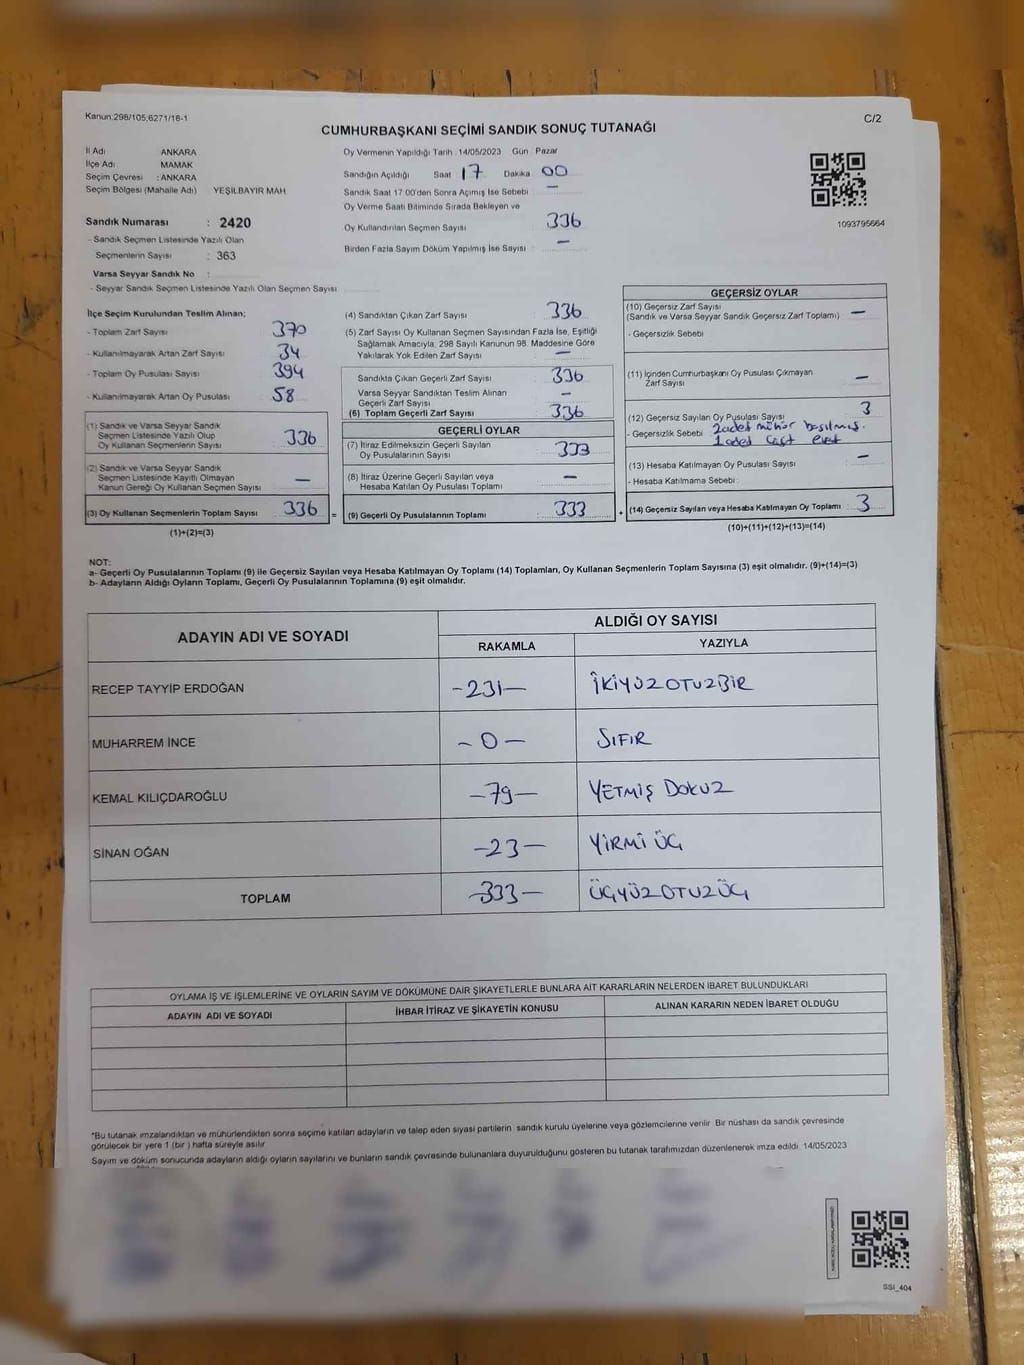 Kanun:298/105,6271/16-1
C/2
CUMHURBAŞKANI SEÇİMİ SANDIK SONUÇ TUTANAĞI
İl Adı ANKARA
İlçe Adı MAMAK
Seçim Çevresi : ANKARA
Seçim Bölgesi (Mahalle Adı) YEŞİLBAYIR MAH.
Sandık Numarası : 2420
- Sandık Seçmen Listesinde Yazılı Olan
Seçmenlerin Sayısı : 363
Varsa Seyyar Sandık No :
- Seyyar Sandık Seçmen Listesinde Yazılı Olan Seçmen Sayısı
Oy Vermenin Yapıldığı Tarih :14/05/2023 Gün : Pazar
Sandığın Açıldığı Saat 17 Dakika 00
Sandık Saat 17:00'den Sonra Açımış İse Sebebi —
Oy Verme Saati Bitiminde Sırada Bekleyen ve
Oy Kullandırılan Seçmen Sayısı 336
Birden Fazla Sayım Döküm Yapılmış İse Sayısı : —
1093795664
İlçe Seçim Kurulundan Teslim Alınan;
- Toplam Zarf Sayısı 370
- Kullanılmayarak Artan Zarf Sayısı 34
- Toplam Oy Pusulası Sayısı 394
- Kullanılmayarak Artan Oy Pusulası 58
(1) Sandık ve Varsa Seyyar Sandık
Seçmen Listesinde Yazılı Olup
Oy Kullanan Seçmenlerin Sayısı 336
(2) Sandık ve Varsa Seyyar Sandık
Seçmen Listesinde Kayıtlı Olmayan
Kanun Gereği Oy Kullanan Seçmen Sayısı —
(3) Oy Kullanan Seçmenlerin Toplam Sayısı 336
(1)+(2)=(3)
(4) Sandıktan Çıkan Zarf Sayısı : 336
(5) Zarf Sayısı Oy Kullanan Seçmen Sayısından Fazla İse, Eşitliği
Sağlamak Amacıyla, 298 Sayılı Kanunun 98. Maddesine Göre
Yakılarak Yok Edilen Zarf Sayısı : —
Sandıkta Çıkan Geçerli Zarf Sayısı 336
Varsa Seyyar Sandıktan Teslim Alınan
Geçerli Zarf Sayısı —
(6) Toplam Geçerli Zarf Sayısı : 336
GEÇERLİ OYLAR
(7) İtiraz Edilmeksizin Geçerli Sayılan
Oy Pusulalarının Sayısı : 333
(8) İtiraz Üzerine Geçerli Sayılan veya
Hesaba Katılan Oy Pusulası Toplamı —
= (9) Geçerli Oy Pusulalarının Toplamı : 333
GEÇERSİZ OYLAR
(10) Geçersiz Zarf Sayısı
(Sandık ve Varsa Seyyar Sandık Geçersiz Zarf Toplamı) —
- Geçersizlik Sebebi
(11) İçinden Cumhurbaşkanı Oy Pusulası Çıkmayan
Zarf Sayısı —
(12) Geçersiz Sayılan Oy Pusulası Sayısı 3
- Geçersizlik Sebebi 2 adet mühür basılmış.
1 adet
(13) Hesaba Katılmayan Oy Pusulası Sayısı —
- Hesaba Katılmama Sebebi :
+ (14) Geçersiz Sayılan veya Hesaba Katılmayan Oy Toplamı 3
(10)+(11)+(12)+(13)=(14)
NOT:
a- Geçerli Oy Pusulalarının Toplamı (9) ile Geçersiz Sayılan veya Hesaba Katılmayan Oy Toplamı (14) Toplamları, Oy Kullanan Seçmenlerin Toplam Sayısına (3) eşit olmalıdır. (9)+(14)=(3)
b- Adayların Aldığı Oyların Toplamı, Geçerli Oy Pusulalarının Toplamına (9) eşit olmalıdır.
ADAYIN ADI VE SOYADI
ALDIĞI OY SAYISI
RAKAMLA YAZIYLA
RECEP TAYYİP ERDOĞAN -231- İKİYÜZ OTUZBİR
MUHARREM İNCE -0- SIFIR
KEMAL KILIÇDAROĞLU -79- YETMİŞ DOKUZ
SİNAN OĞAN -23- YİRMİ ÜÇ
TOPLAM -333- ÜÇYÜZ OTUZ ÜÇ
OYLAMA İŞ VE İŞLEMLERİNE VE OYLARIN SAYIM VE DÖKÜMÜNE DAİR ŞİKAYETLERLE BUNLARA AİT KARARLARIN NELERDEN İBARET BULUNDUKLARI
ADAYIN ADI VE SOYADI İHBAR İTİRAZ VE ŞİKAYETİN KONUSU ALINAN KARARIN NEDEN İBARET OLDUĞU
*Bu tutanak imzalandıktan ve mühürlendikten sonra seçime katılan adayların ve talep eden siyasi partilerin sandık kurulu üyelerine veya gözlemcilerine verilir. Bir nüshası da sandık çevresinde
görülecek bir yere 1 (bir ) hafta süreyle asılır
Sayım ve döküm sonucunda adayların aldığı oyların sayılarını ve bunların sandık çevresinde bulunanlara duyurulduğunu gösteren bu tutanak tarafımızdan düzenlenerek imza edildi. 14/05/2023
SSI_404